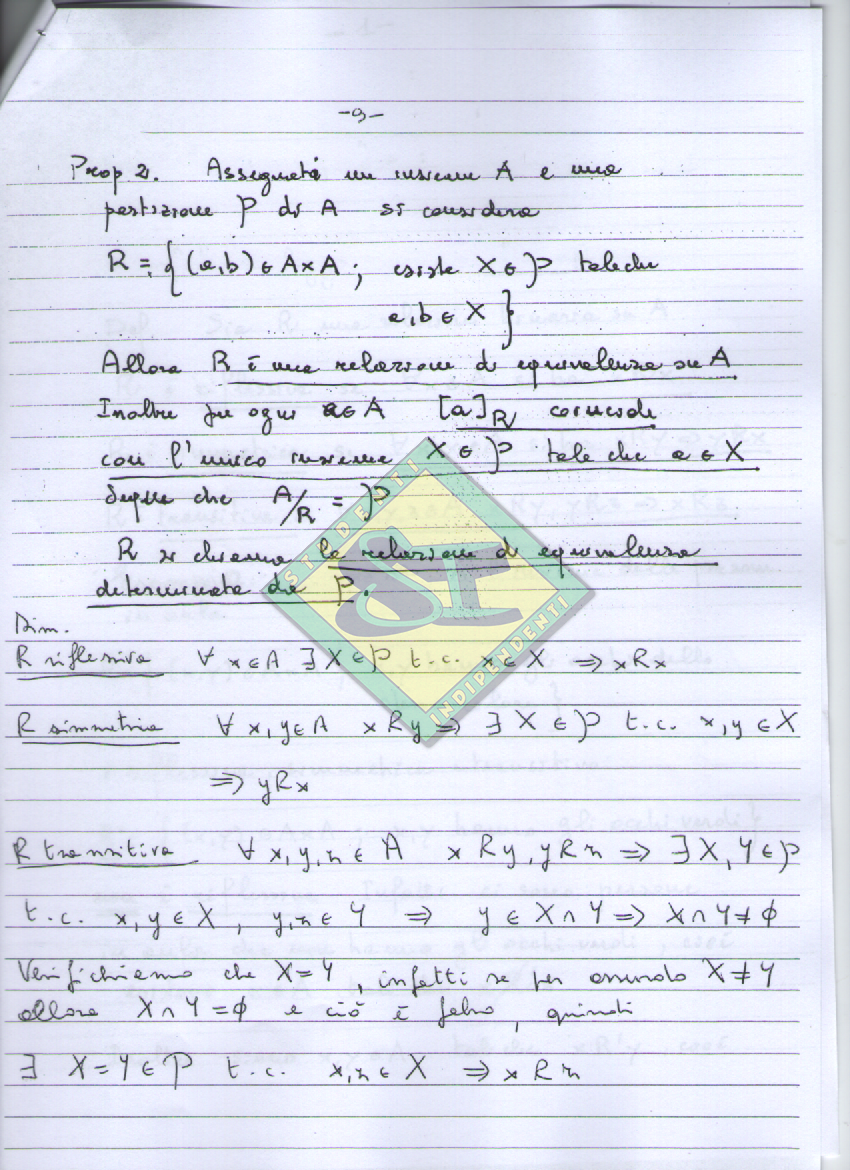 -9-
Prop 2. Assegnati un insieme A e una
partizione P di A si considera
R = {(a,b) ∈ A×A ; esiste X ∈ P tale che
a,b ∈ X}
Allora R è una relazione di equivalenza su A
Inoltre per ogni a ∈ A [a]_R coincide
con l'unico insieme X ∈ P tale che a ∈ X
Segue che A/R = P
R si chiama la relazione di equivalenza
determinata da P.
Dim.
R riflessiva ∀ x ∈ A ∃ X ∈ P t.c. x ∈ X ⇒ xRx
R simmetrica ∀ x,y ∈ A xRy ⇒ ∃ X ∈ P t.c. x,y ∈ X
⇒ yRx
R transitiva ∀ x,y,z ∈ A xRy, yRz ⇒ ∃ X,Y ∈ P
t.c. x,y ∈ X, y,z ∈ Y ⇒ y ∈ X ∩ Y ⇒ X ∩ Y ≠ ϕ
Verifichiamo che X = Y, infatti se per assurdo X ≠ Y
allora X ∩ Y = ϕ e ciò è falso, quindi
∃ X = Y ∈ P t.c. x,z ∈ X ⇒ xRz
STUDENTI
SI
INDIPENDENTI